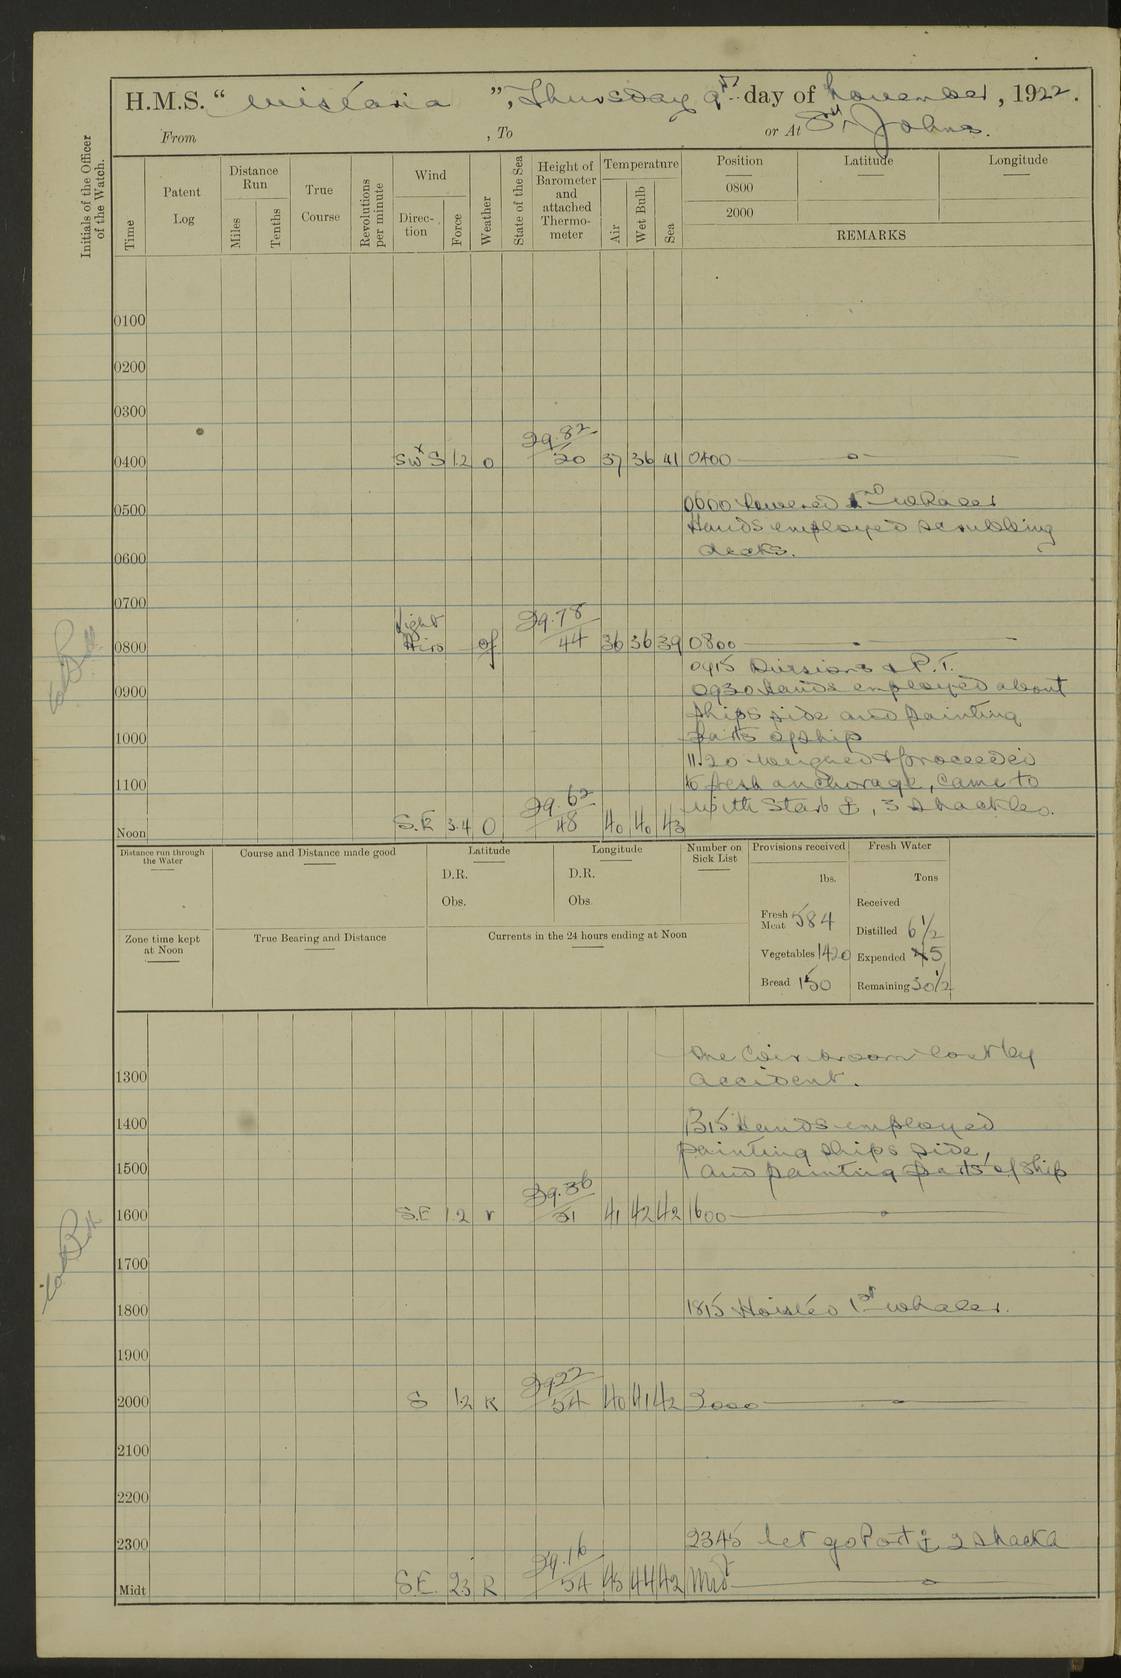 H.M.S. “ Wistaria ”, Thursday 9th day of November, 1922.
From , To or At St Johns.
Initials of the Officer of the Watch.
Time
Patent Log
Distance Run
Miles
Tenths
True Course
Revolutions per minute
Wind
Direction
Force
Weather
State of the Sea
Height of Barometer and attached Thermometer
Temperature
Air
Wet Bulb
Sea
Position Latitude Longitude
0800
2000
REMARKS
0100
0200
0300
0400 SWxS 1.2 o 29.82 / 50 37 36 41 0400
0500 0600 Lowered 1st whaler
Hands employed scrubbing
decks.
0600
0700
0800 Light Airs of 29.78 / 44 36 36 39 0800
0915 Divisions & P.T.
0900 0930 Hands employed about
ships side and painting
1000 parts of ship
11.20 weighed & proceeded
1100 to fresh anchorage, came to
with Starb ⚓, 3 shackles.
Noon S.E 3.4 O 29.62 / 48 40 40 43
Distance run through the Water
Course and Distance made good
Latitude
D.R.
Obs.
Longitude
D.R.
Obs.
Number on Sick List
Provisions received
lbs.
Fresh Meat 584
Vegetables 1420
Bread 150
Fresh Water
Tons
Received
Distilled 6 1/2
Expended 5
Remaining 30 1/2
Zone time kept at Noon
True Bearing and Distance
Currents in the 24 hours ending at Noon
One Coir broom lost by
1300 accident.
1400 1315 Hands employed
painting ships side,
1500 and painting parts of ship
1600 S.E 1.2 r 29.36 / 51 41 42 42 1600
1700
1800 1815 Hoisted 1st whaler.
1900
2000 S 1.2 R 29.22 / 54 40 41 42 2000
2100
2200
2300 2345 let go Port ⚓ 2 shackls
Midt S.E. 2.3 R 29.16 / 54 45 44 42 Midt